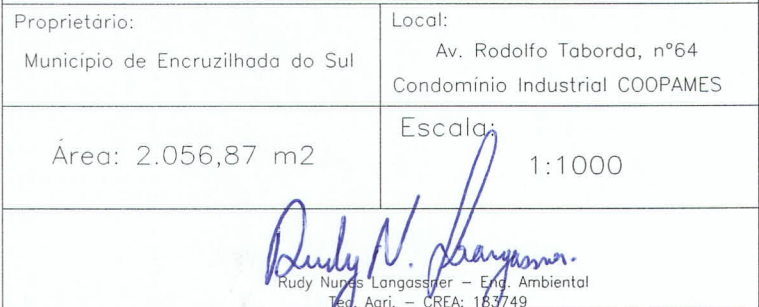 Proprietário:
Município de Encruzilhada do Sul
Local:
Av. Rodolfo Taborda, nº64
Condomínio Industrial COOPAMES
Área: 2.056,87 m2
Escala:
1:1000
Rudy N. Langassner.
Rudy Nunes Langassner – Eng. Ambiental
Teg. Agri. – CREA: 183749